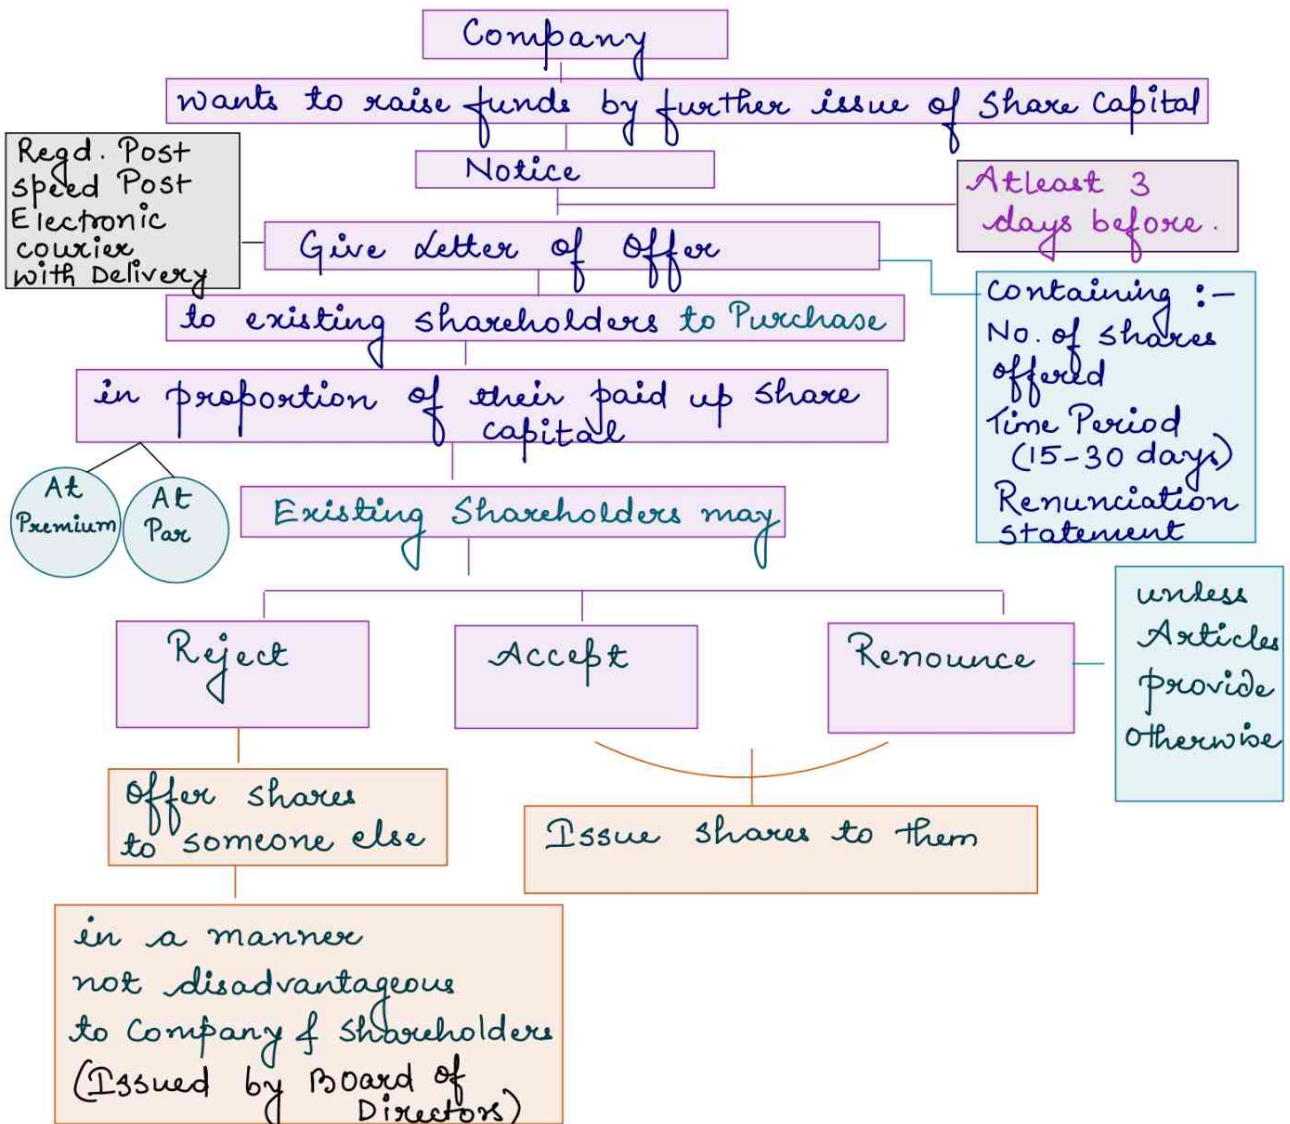 Company
wants to raise funds by further issue of Share Capital
Regd. Post
speed Post
Electronic
courier
with Delivery
Notice
Atleast 3
days before.
Give Letter of Offer
containing :-
No. of shares
offered
Time Period
(15-30 days)
Renunciation
statement
to existing shareholders to Purchase
in proportion of their paid up share
capital
At
Premium
At
Par
Existing Shareholders may
Reject
Accept
Renounce
unless
Articles
provide
otherwise
Offer shares
to someone else
Issue shares to them
in a manner
not disadvantageous
to Company & Shareholders
(Issued by Board of
Directors)